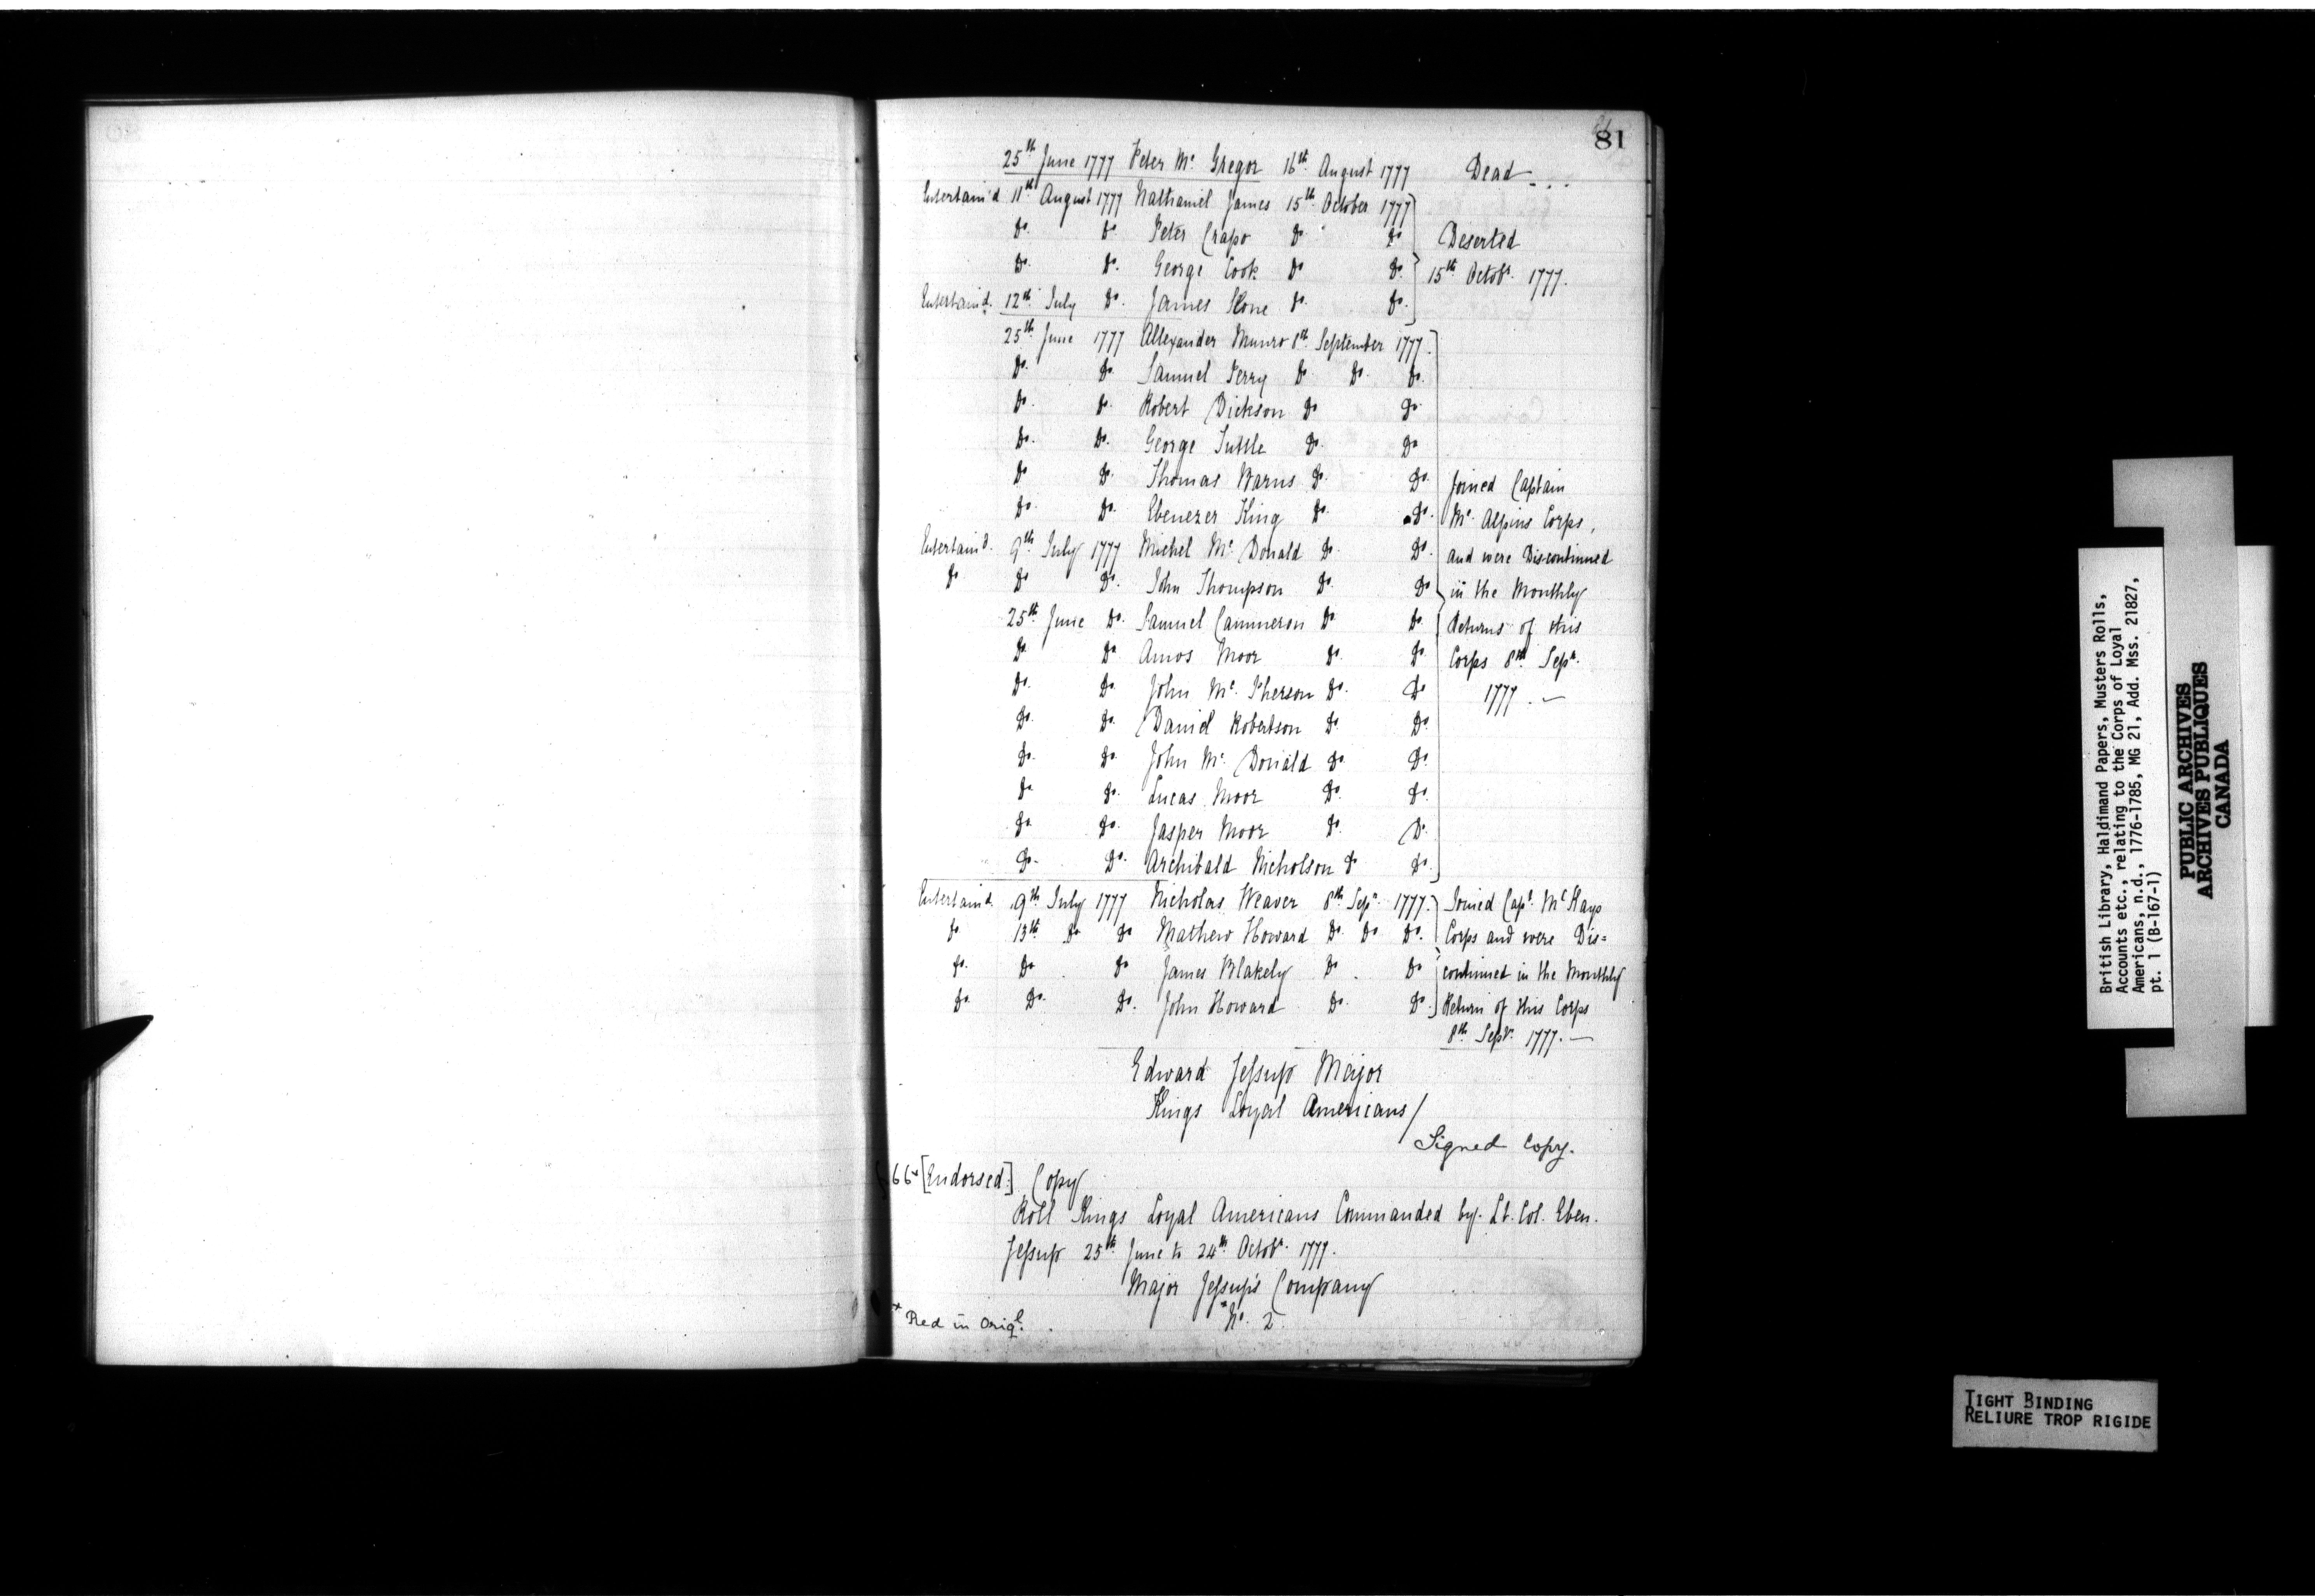 81
25th June 1777 Peter Mc. Gregor 16th August 1777 Dead
Entertain'd 11th August 1777 Nathaniel James 15th October 1777
Do. Do Peter Crapo Do Do Deserted
Do. Do. George Cook Do Do. 15th Octobr. 1777.
Entertaind. 12th July Do. James Do. Do.
25th June 1777 Allexander Munro 8th September 1777.
Do. Do. Samuel Perry Do Do. Do.
Do. Do. Robert Dickson Do Do.
Do. Do. George Tuttle Do. Do
Do Do. Thomas Barns Do. Do. Joined Captain
Do. Do. Ebenezer King Do. Do. Mc. Alpins Corps,
Entertaind. 9th July 1777 Michel Mc Donald Do. Do. and were Discontinued
Do. Do Do. John Thompson Do. Do in the Monthly
25th June Do. Samuel Cammeron Do Do. Returns of this
Do. Do Amos Moor Do. Do. Corps 8th Sepr.
Do. Do. John Mc. Pherson Do. Do 1777. —
Do. Do. Daniel Robertson Do. Do.
Do. Do. John Mc. Donald Do. Do.
Do Do. Lucas Moor Do. Do.
Do. Do. Jasper Moor Do. Do.
Do. Do. Archibald Nicholson Do Do.
Entertaind. 9th July 1777 Nicholas Weaver 8th Sepr. 1777. Joined Capt. McKays
Do. 13th Do Do Mathew Howard Do. Do Do. Corps and were Dis=
Do. Do. Do James Blakely Do. Do continued in the Monthly
Do. Do. Do. John Howard Do. Do. Return of this Corps
8th Sepr. 1777. —
Edward Jessup Major
Kings Loyal Americans/
Signed Copy.
66* [Endorsed:] Copy
Roll Kings Loyal Americans Commanded by. Lt. Col. Eben.
Jessup 25th June to 24th Octobr. 1777.
Major Jessup's Company
*No. 2
* Red in Origl.
British Library, Haldimand Papers, Musters Rolls,
Accounts etc., relating to the Corps of Loyal
Americans, n.d., 1776-1785, MG 21, Add. Mss. 21827,
pt. 1 (B-167-1)
PUBLIC ARCHIVES
ARCHIVES PUBLIQUES
CANADA
TIGHT BINDING
RELIURE TROP RIGIDE